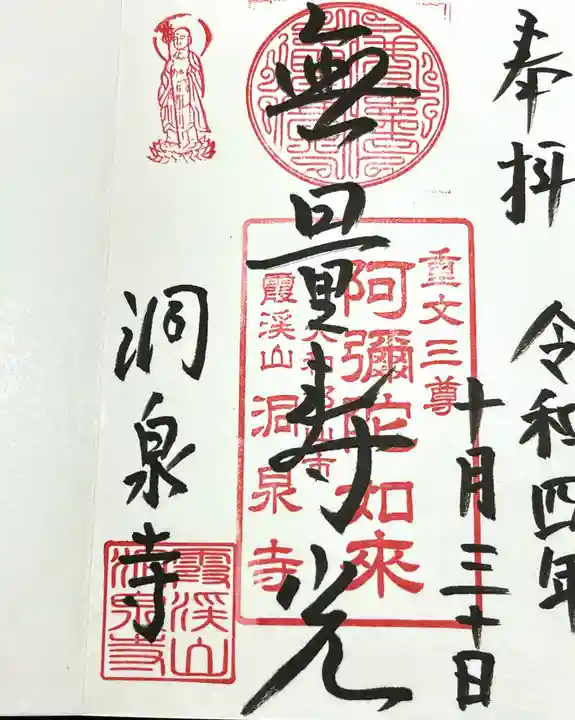 奉拝
令和四年
十月三十日
無量寿光
重文三尊
阿彌陀如來
大和郡山市
霞溪山 洞泉寺
洞泉寺
霞溪山
洞泉寺